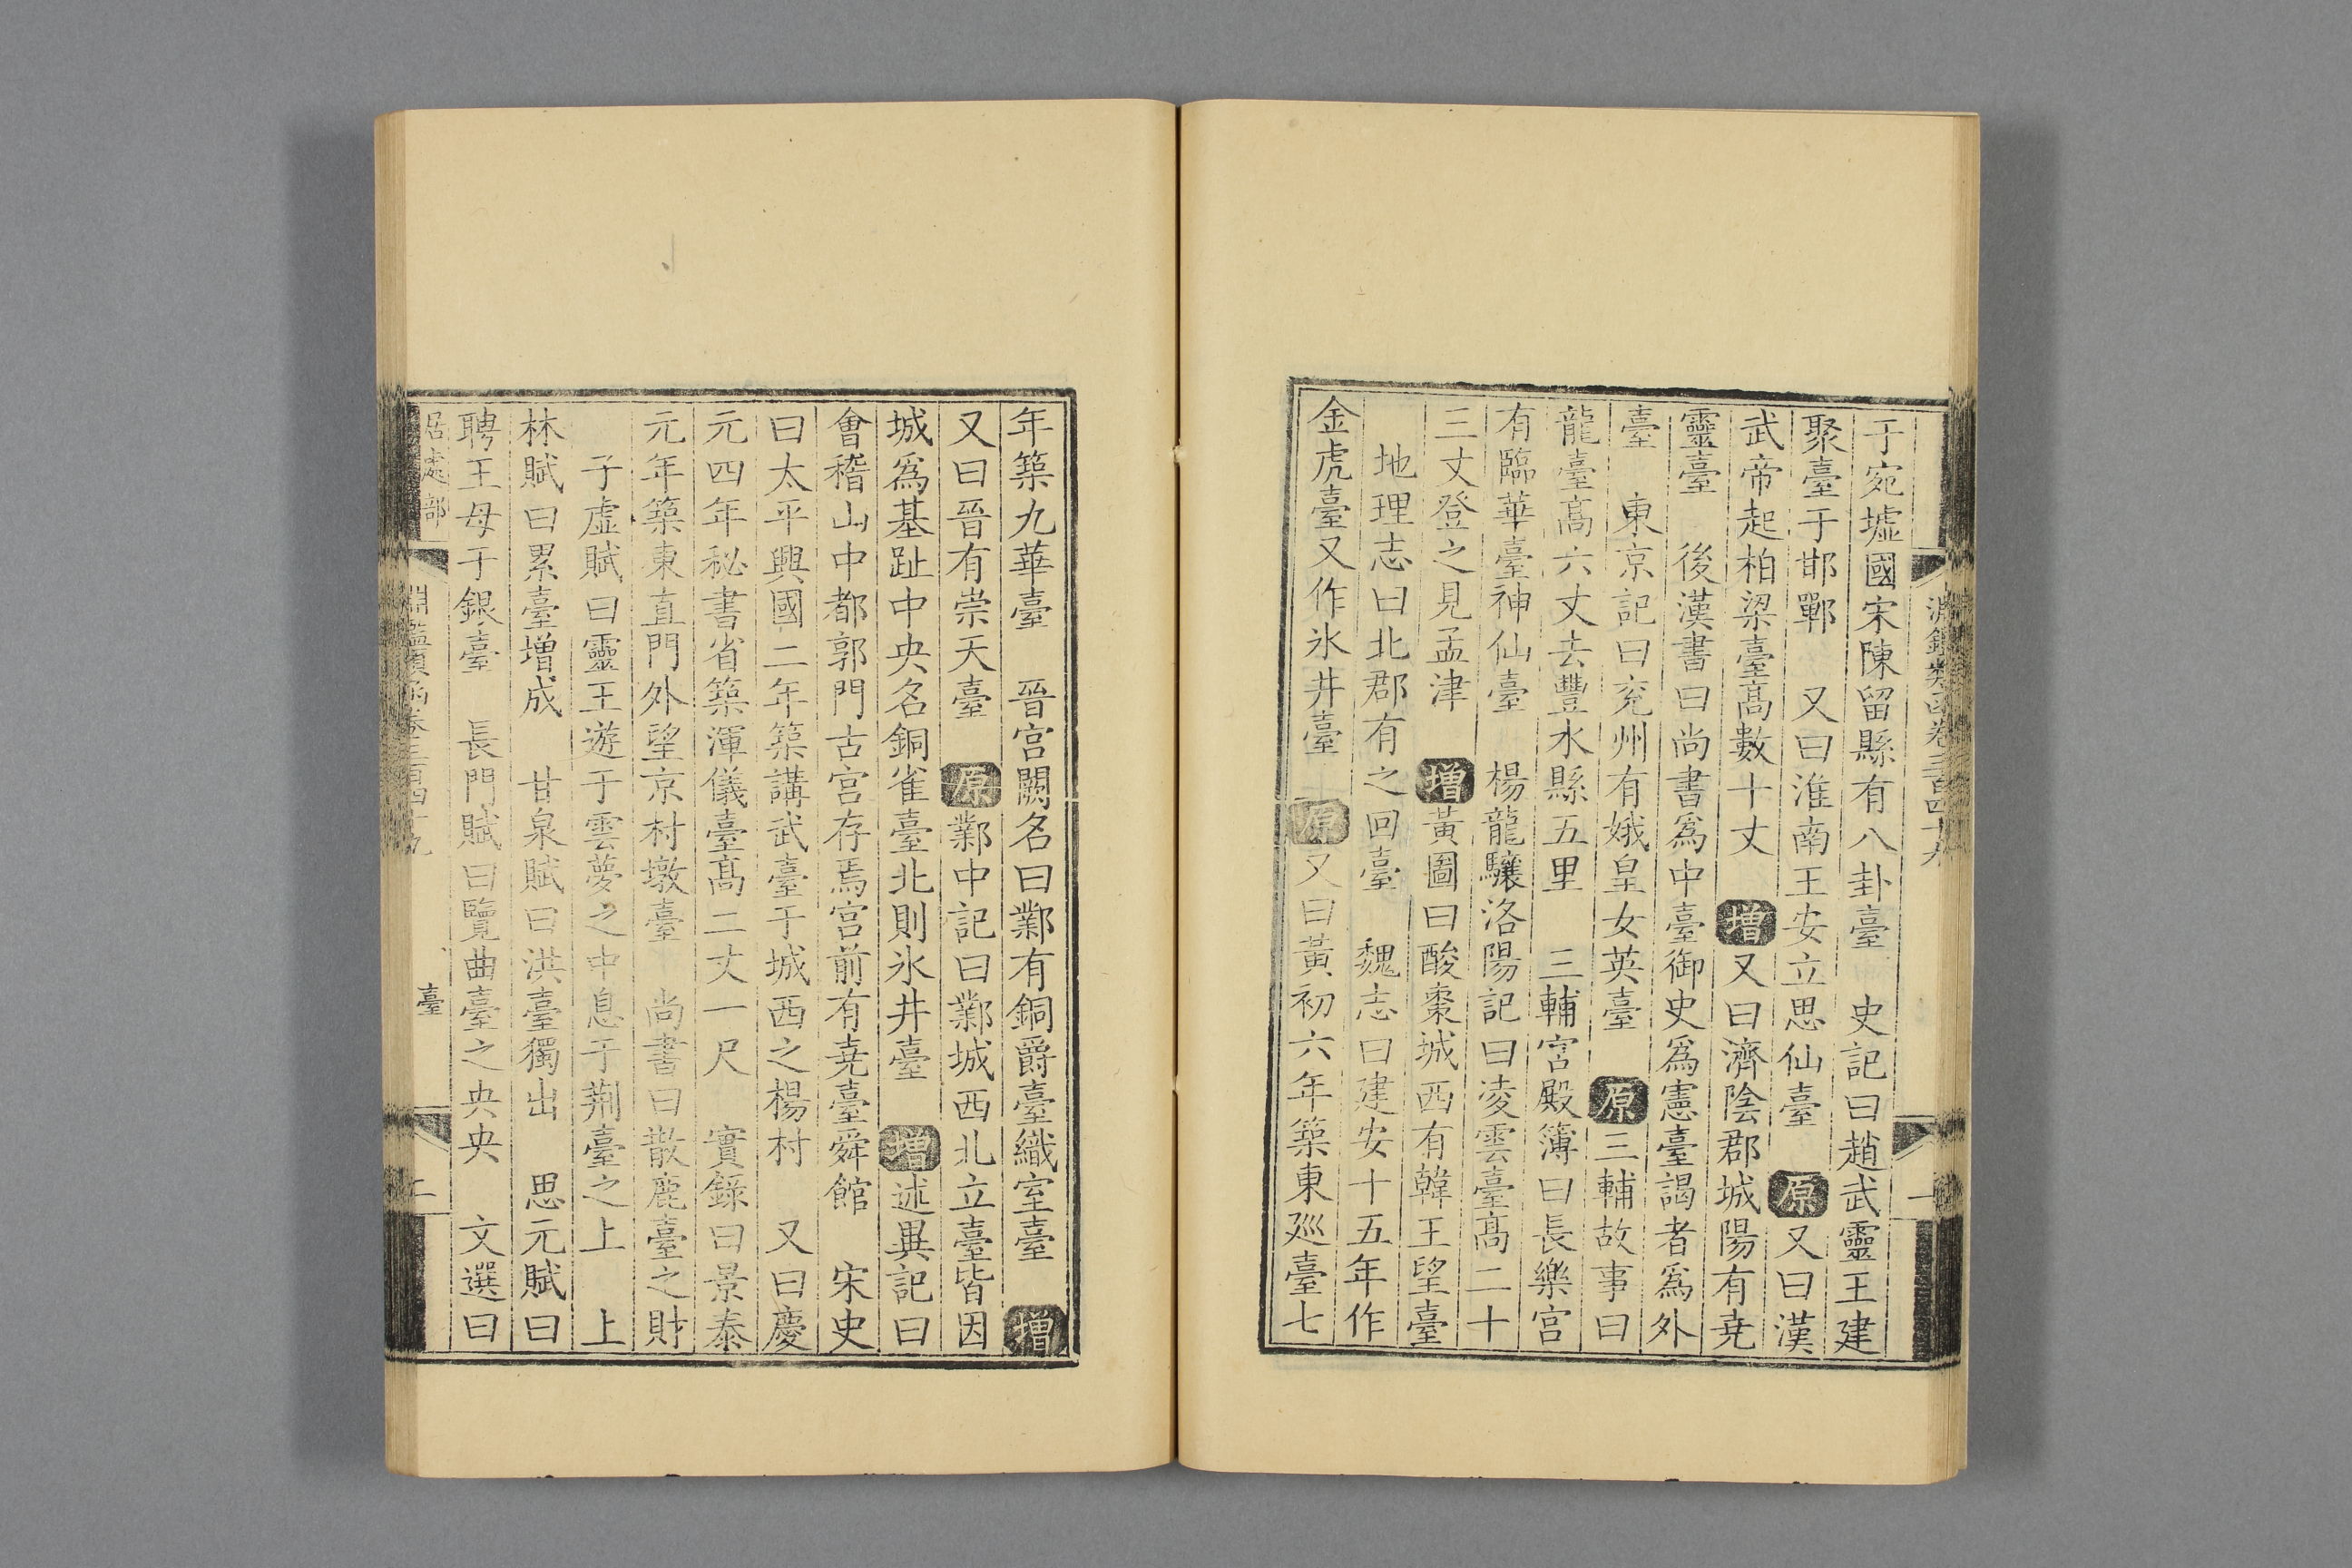 淵鑑類函卷三百四十九
一
于宛墟國宋陳留縣有八卦臺　史記曰趙武靈王建
聚臺于邯鄲　又曰淮南王安立思仙臺　原又曰漢
武帝起柏梁臺高數十丈　增又曰濟陰郡城陽有堯
靈臺　後漢書曰尚書爲中臺御史爲憲臺謁者爲外
臺　東京記曰兖州有娥皇女英臺　原三輔故事曰
龍臺高六丈去豐水縣五里　三輔宮殿簿曰長樂宮
有臨華臺神仙臺　楊龍驤洛陽記曰凌雲臺高二十
三丈登之見孟津　增黃圖曰酸棗城西有韓王望臺
地理志曰北郡有之回臺　魏志曰建安十五年作
金虎臺又作氷井臺　原又曰黃初六年築東廵臺七
年築九華臺　晉宮闕名曰鄴有銅爵臺織室臺　增
又曰晉有崇天臺　原鄴中記曰鄴城西北立臺皆因
城爲基趾中央名銅雀臺北則氷井臺　增述異記曰
會稽山中都郭門古宮存焉宮前有堯臺舜館　宋史
曰太平興國二年築講武臺于城西之楊村　又曰慶
元四年秘書省築渾儀臺高二丈一尺　實錄曰景泰
元年築東直門外望京村墩臺　尚書曰散鹿臺之財
子虛賦曰靈王遊于雲夢之中息于荆臺之上　上
林賦曰累臺增成　甘泉賦曰洪臺獨出　思元賦曰
聘王母于銀臺　長門賦曰覽曲臺之央央　文選曰
居處部
淵鑑類函卷三百四十九
臺
二